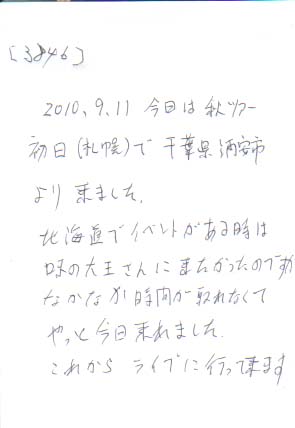 [3846]
2010.9.11 今日は秋ツアー
初日(札幌)で千葉県浦安市
より来ました.
北海道でイベントがある時は
味の大王さんに来たかったのですが
なかなか時間が取れなくて
やっと今日来れました.
これから ライブに行って来ます